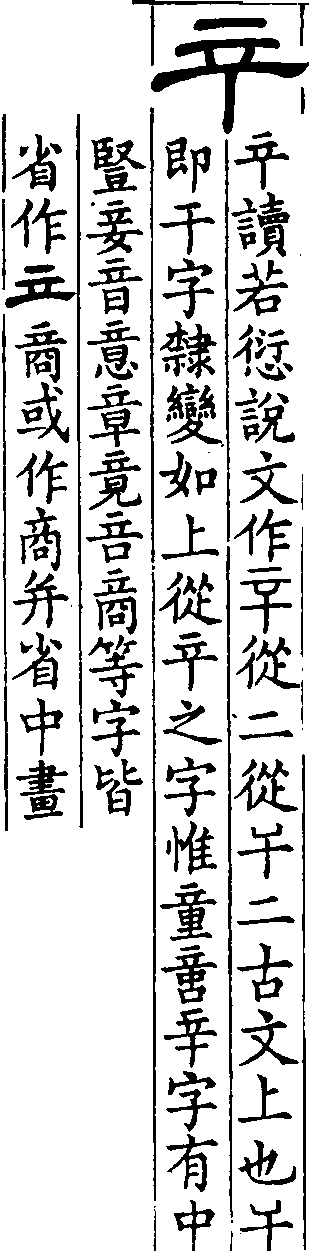 䇂
䇂讀若愆說文作䇂從二從干二古文上也干
即干字隸變如上從䇂之字惟童䇂字有中
豎妾音意章竟咅商等字皆
省作立商或作商并省中畫